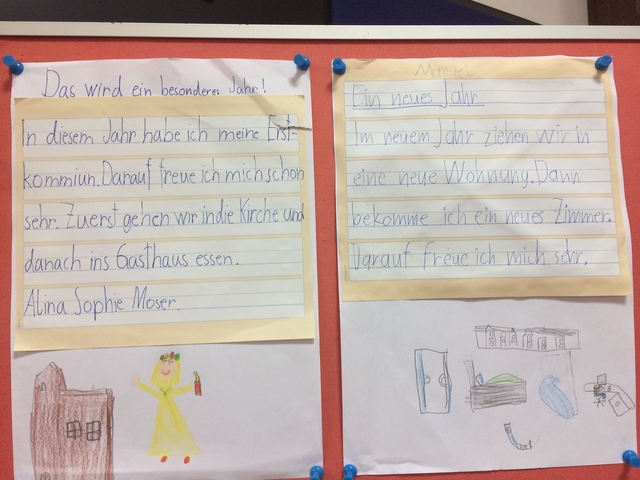 Das wird ein besonderes Jahr!
In diesem Jahr habe ich meine Erst-
kommiun. Darauf freue ich mich schon
sehr. Zuerst gehen wir in die Kirche und
danach ins Gasthaus essen.
Alina Sophie Moser.
Ein neues Jahr
Im neuem Jahr ziehen wir in
eine neue Wohnung. Dann
bekomme ich ein neues Zimmer.
Darauf freue ich mich sehr.